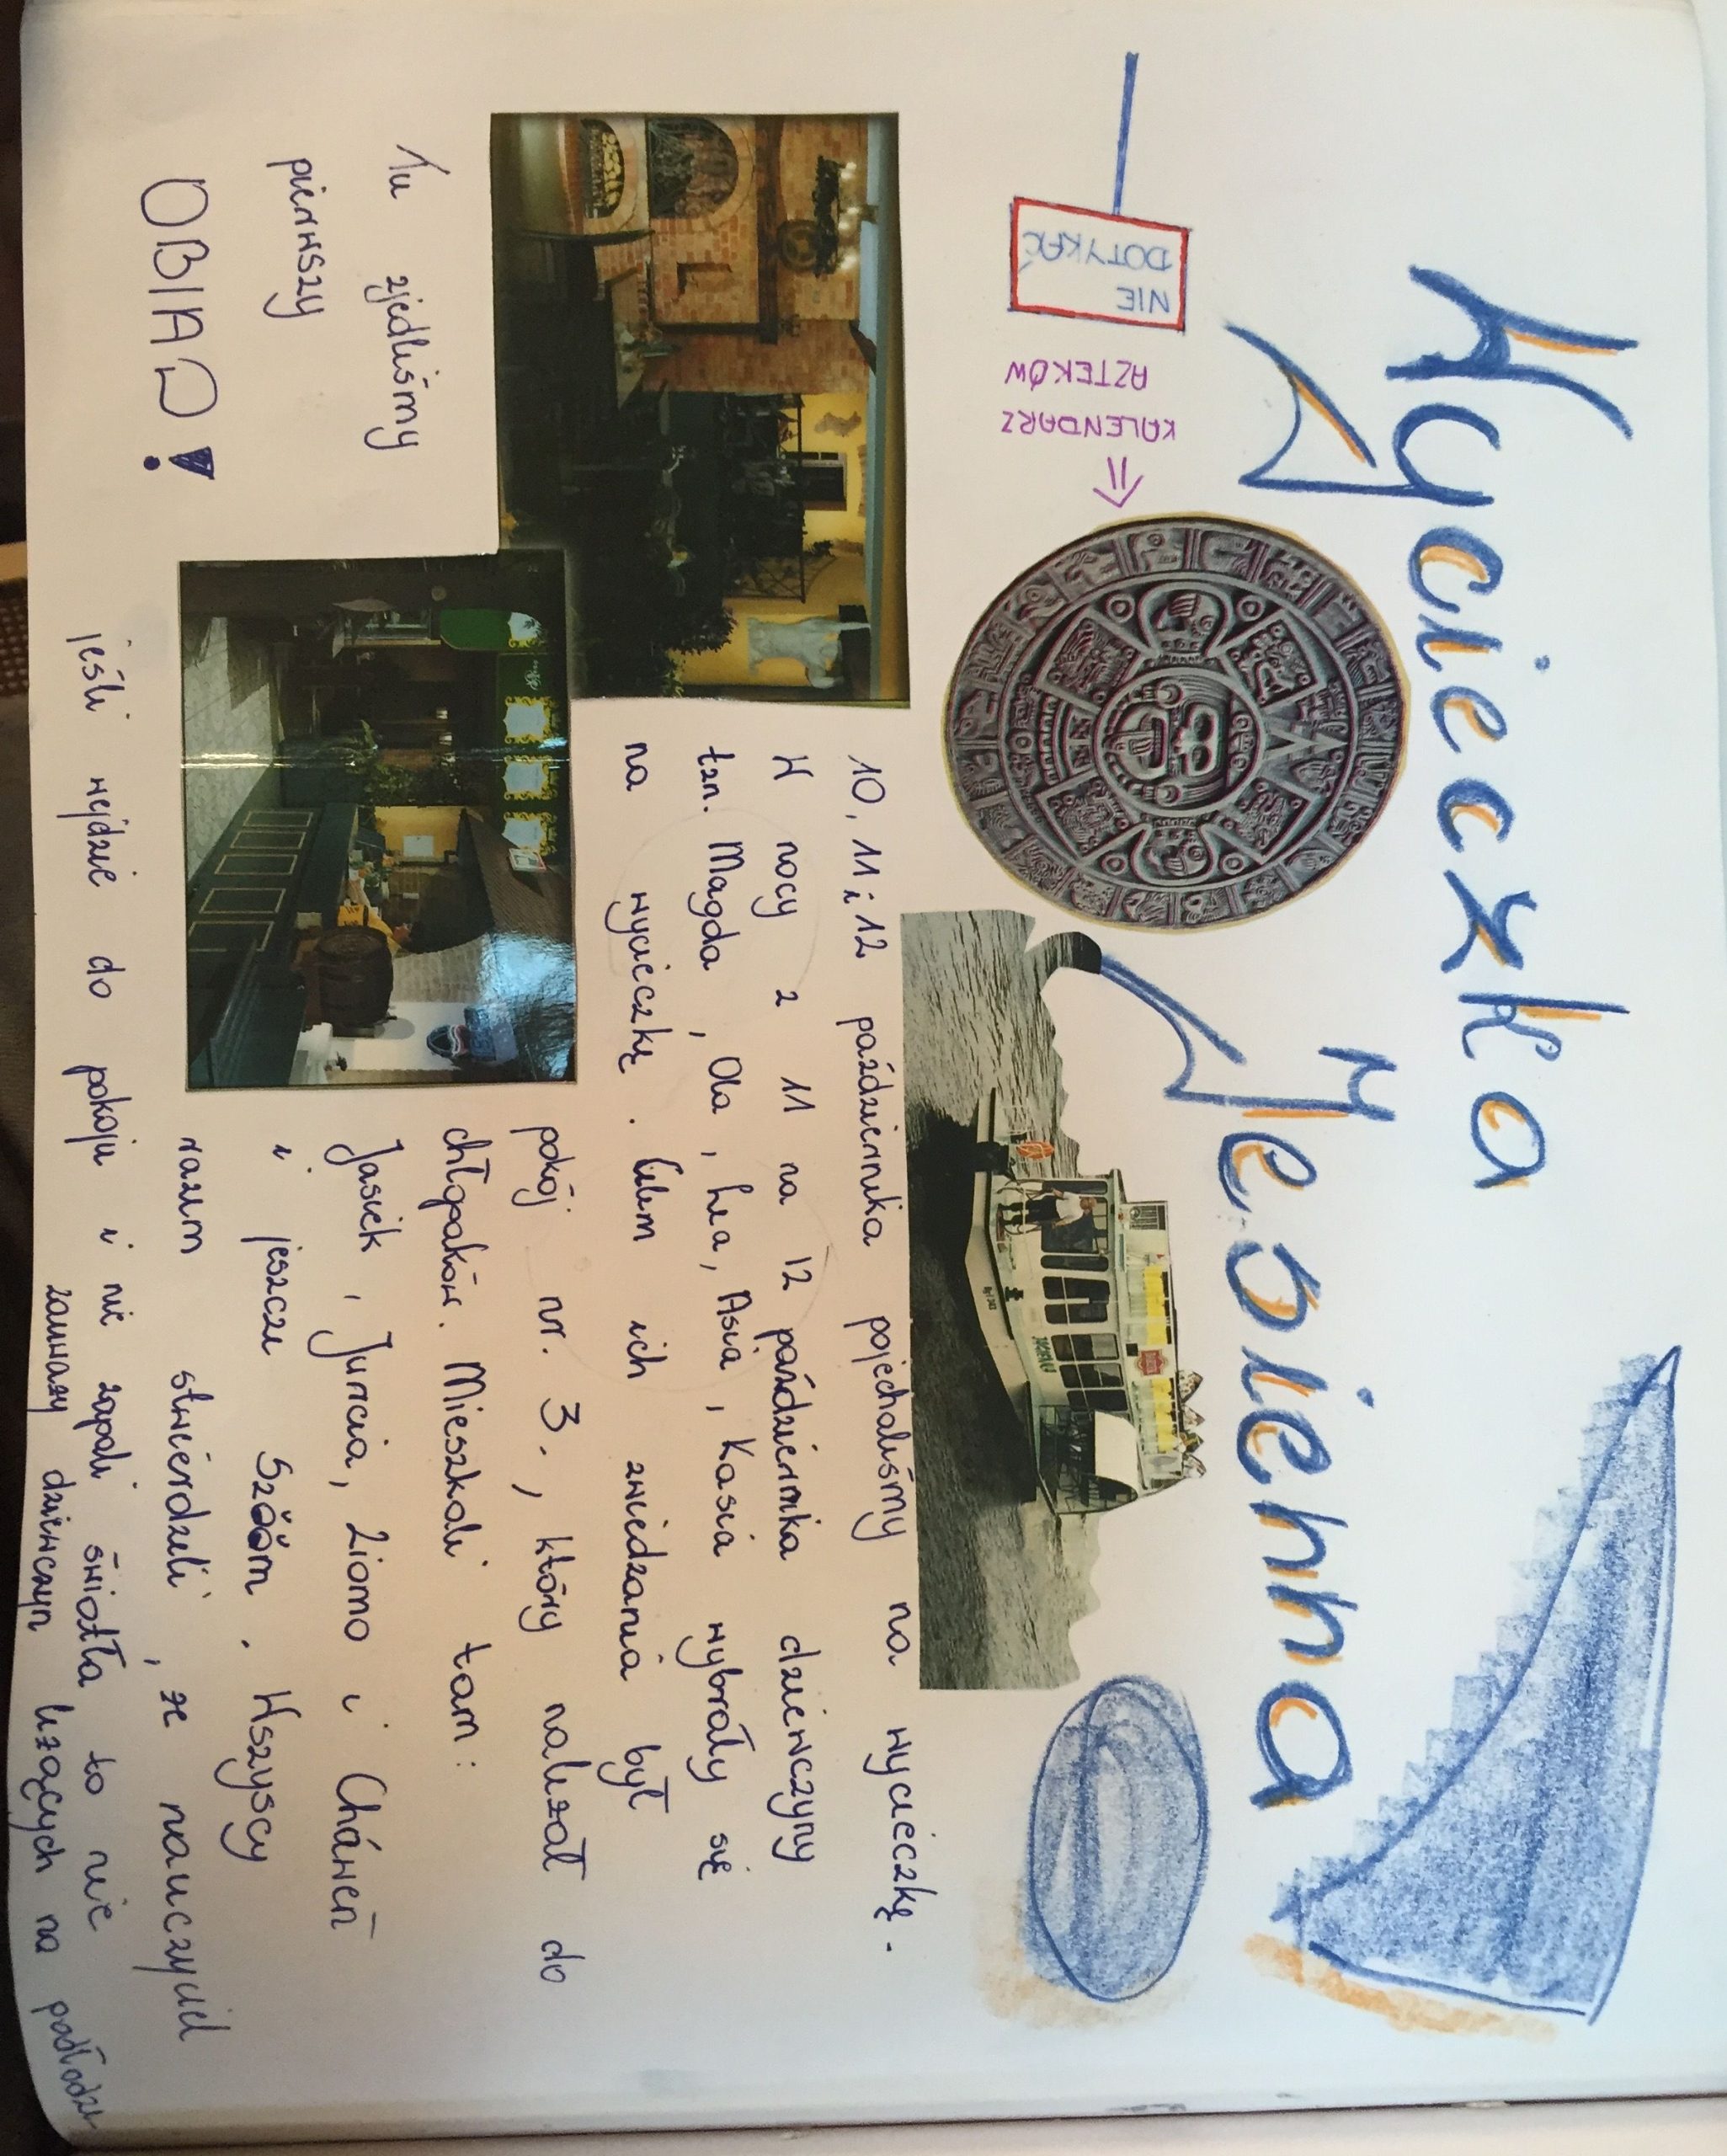 Wycieczka
w
Jesienna
KALENDARZ
AZTEKÓW
NIE
DOTYKAĆ
10, 11 i 12 października pojechaliśmy na wycieczkę.
W nocy z 11 na 12 października dziewczyny
tzn. Magda, Ola, Lea, Asia, Kasia wybrały się
na wycieczkę. Celem ich zwiedzania był
pokój nr. 3., który należał do
chłopaków. Mieszkali tam:
Jasiek, Jurcia, Ziomo i Cháweń
i jeszcze Szőőm. Wszyscy
razem stwierdzili, że nauczyciel
jeśli wejdzie do pokoju i nie zapali światła to nie
zauważy dziewczyn leżących na podłodze
Tu zjedliśmy
pierwszy
OBIAD!